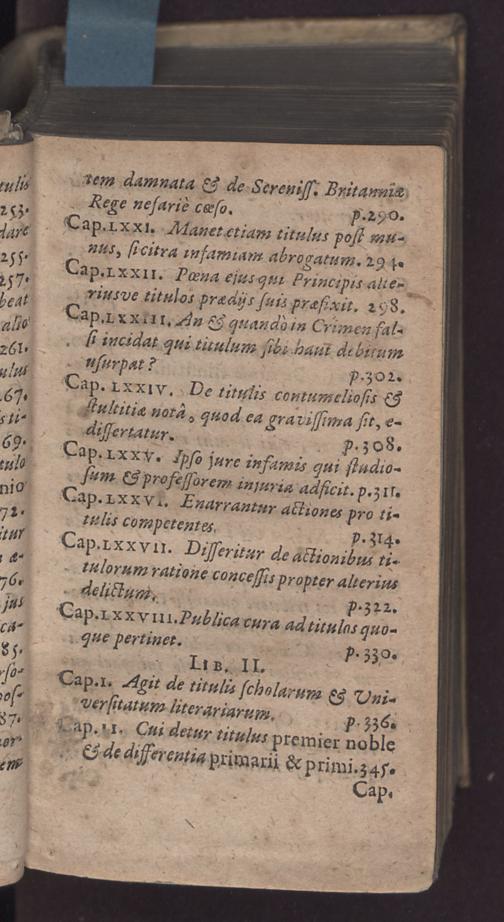 tulis
253.
dare
255.
257.
beat
alio
261.
ulus
67.
s ti-
69.
tulo
nio
72.
itur
n æ-
76.
jus
ca-
85.
rso-
pos-
87.
nor-
em
tem damnata & de Sereniſſ. Britanniæ
Rege nefariè cæso. p.290.
Cap.LXXI. Manet etiam titulus poſt mu-
nus, ſi citra infamiam abrogatum. 294.
Cap.LXXII. Pœna ejus qui Principis alte-
riusve titulos prædijs ſuis præfixit. 298.
Cap.LXXIII. An & quandò in Crimen fal-
ſi incidat qui titulum ſibi haut debitum
uſurpat? p.302.
Cap. LXXIV. De titulis contumelioſis &
ſtultitiæ notâ, quod ea graviſſima ſit, e-
diſſertatur. p.308.
Cap.LXXV. Ipſo jure infamis qui ſtudio-
ſum & profeſſorem injuria adficit. p.311.
Cap.LXXVI. Enarrantur actiones pro ti-
tulis competentes. p.314.
Cap.LXXVII. Diſſeritur de actionibus ti-
tulorum ratione conceſſis propter alterius
delictum. p.322.
Cap.LXXVIII. Publica cura ad titulos quo-
que pertinet. p.330.
LIB. II.
Cap.I. Agit de titulis ſcholarum & Uni-
verſitatum literariarum. p.336.
Cap.II. Cui detur titulus premier noble
& de differentia primarii & primi. 345.
Cap.